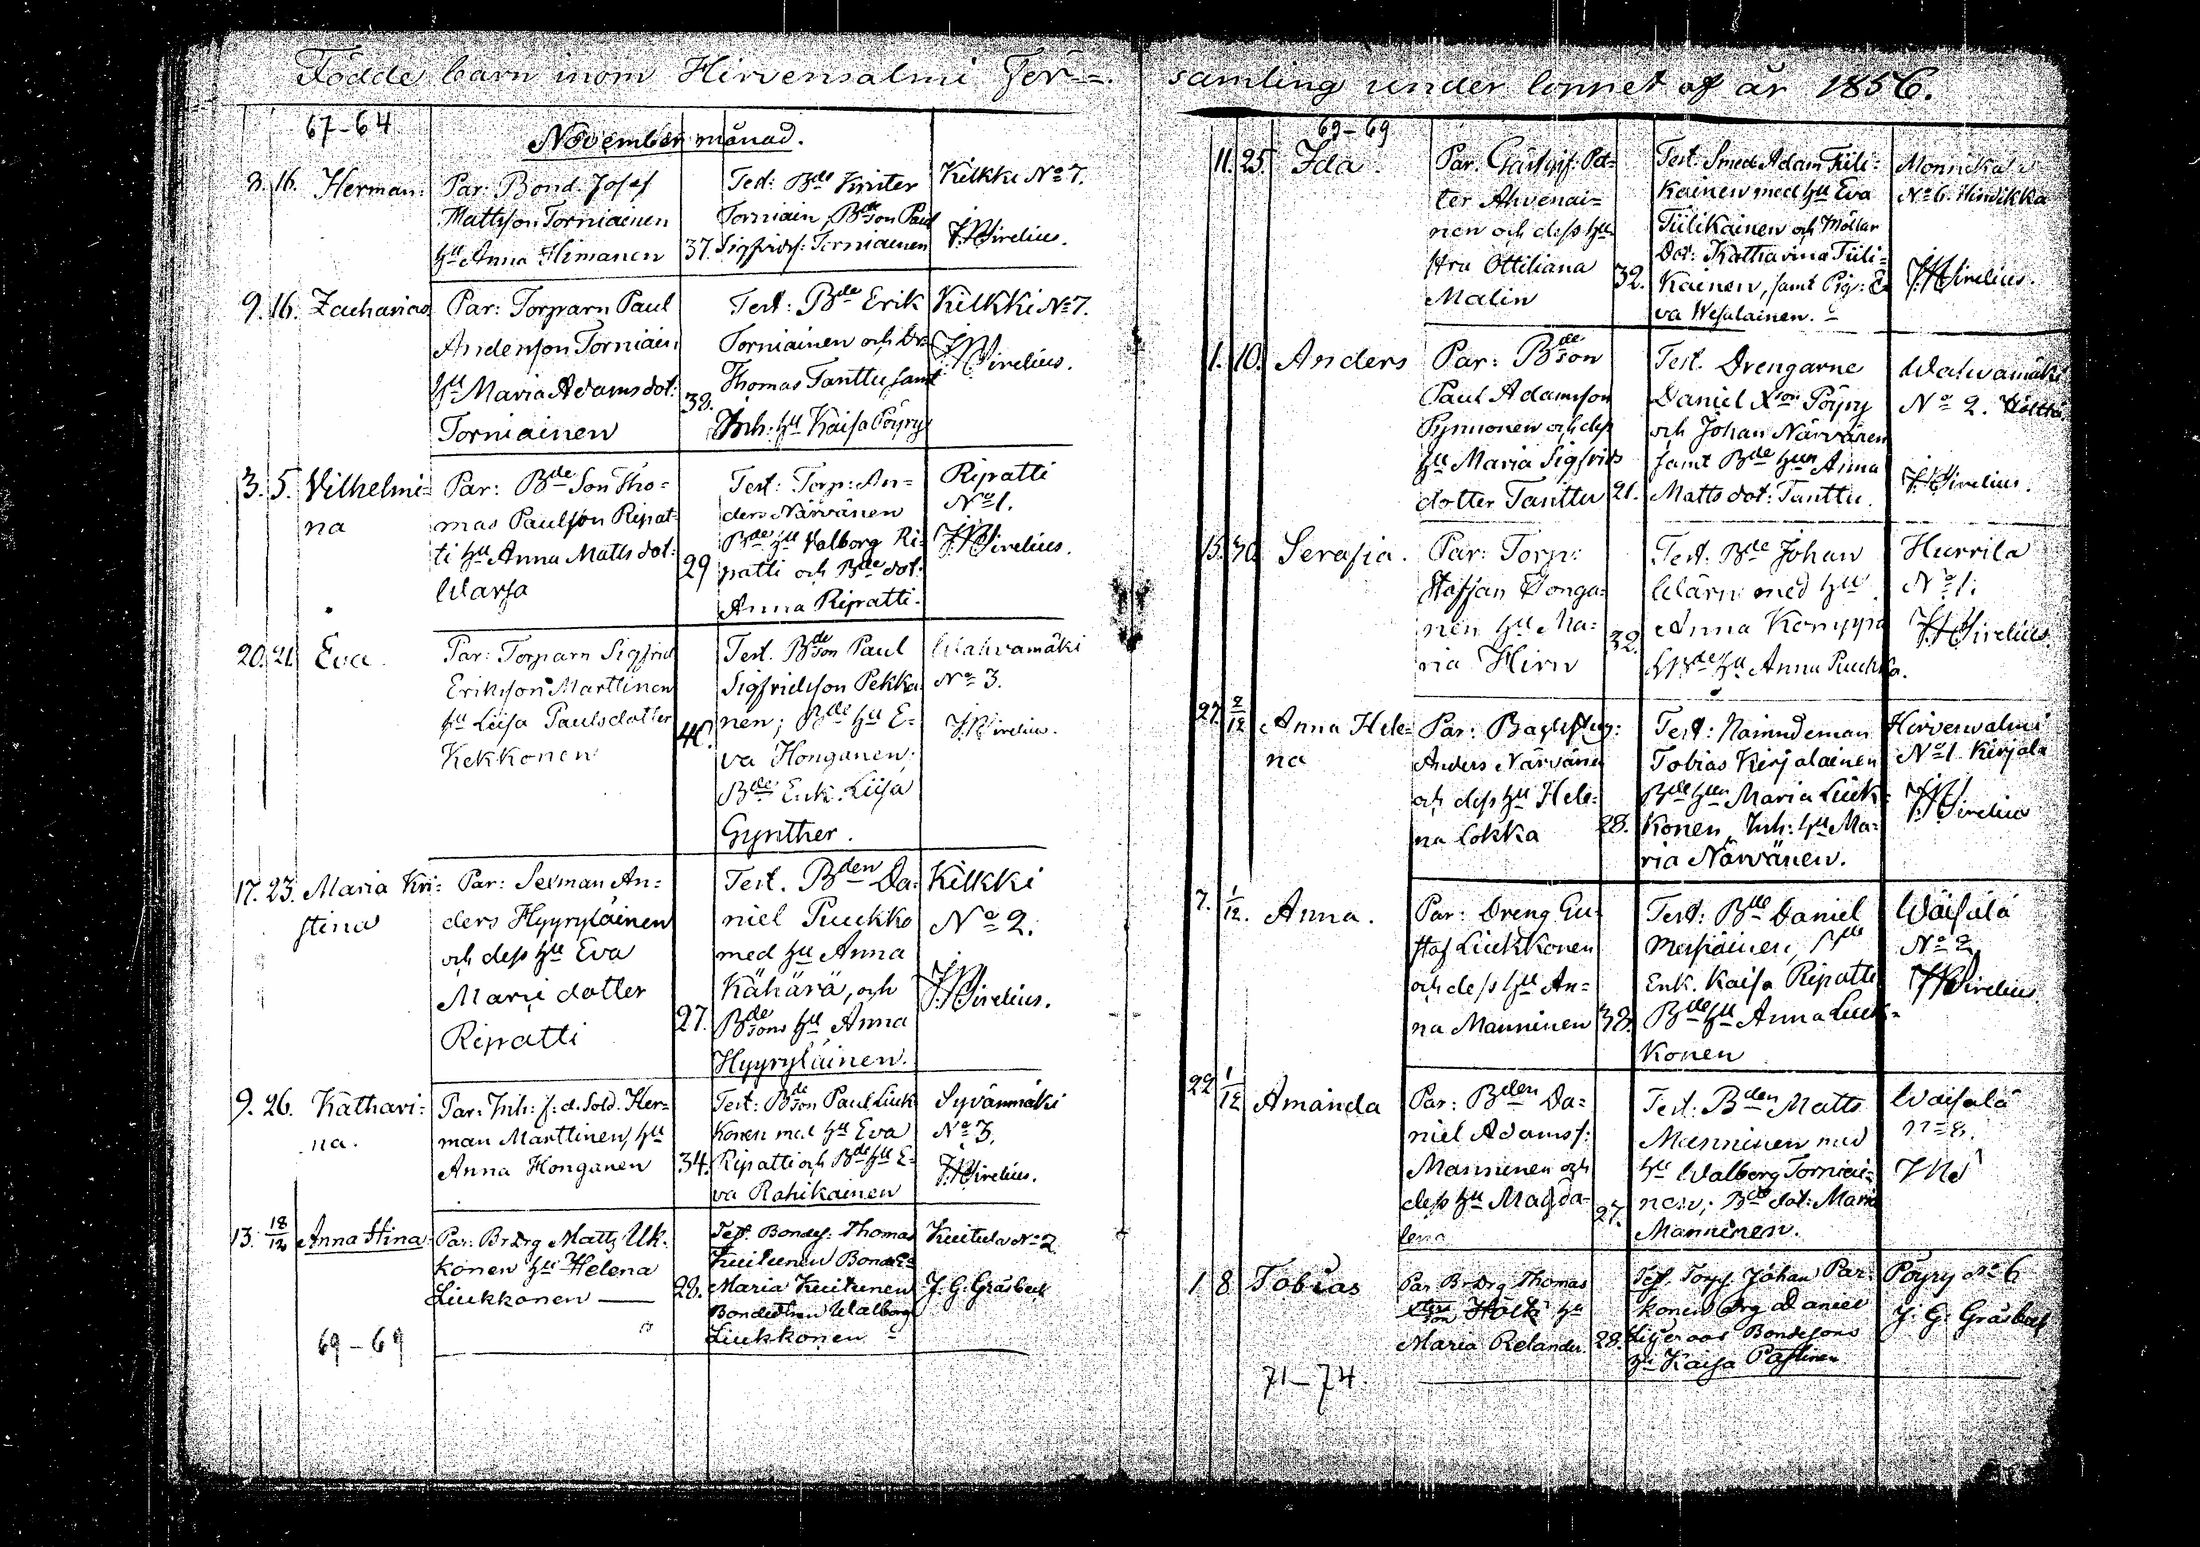 Födde barn inom Hirvensalmi För=
67-64
November månad.
8. 16. Herman.
Par: Bond. Josef
Mattsson Torniainen
hu Anna Himanen 37.
Test: Bde Krister
Torniain, Bdeson Paul
Sigfridss: Torniainen
Kilkki No 7.
9. 16. Zacharias
Par: Torparn Paul
Andersson Torniain
hu Maria Adamsdot:
Torniainen 38.
Test: Bde Erik
Torniainen och Dr
Thomas Tanttu, samt
Inh: hu Kaisa Pöyry
Kilkki No 7.
3. 5. Vilhelmi=
na
Par: Bde Son Tho=
mas Paulsson Ripat=
ti hu Anna Matts dot:
Warsa 29
Test: Torp: An=
ders Närvänen
Bde hu Valborg Ri=
patti och Bde dot:
Anna Ripatti.
Ripatti
No 1.
20. 21. Eva.
Par: Torparn Sigfrid
Eriksson Marttinen
hu Leisa Paulsdotter
Kekkonen
Test. Bdeson Paul
Sigfridsson Pekka
nen; Bde hu E=
va Honganen;
Bde Enk. Liisa
Gynther.
Wahvamäki
No 3.
17. 23. Maria Kri=
stina
Par: Sexman An=
ders Hyyryläinen
och dess hu Eva
Marie dotter
Ripatti 27.
Test. Bden Da=
niel Puukko
med hu Anna
Kähärä, och
Bdesons hu Anna
Hyyryläinen.
Kilkki
No 2.
9. 26. Kathari=
na.
Par: Inh: f: d. Sold. Her=
man Marttinen, hu
Anna Honganen 34.
Test: Bdeson Paul Liuk
konen med hu Eva
Ripatti och Bde hu E=
va Rahikainen
Syvänmäki
No 3.
13. 18/12 Anna Stina
Par: BrDrg Matts Uk=
konen hu Helena
Liukkonen 28.
Test. Bondes: Thomas
Kuitunen
Maria Kuitunen
Walborg
Liukkonen
Kuitula No 2
J. G. Gråsbeck
69-69
samling under loppet af år 1856.
69-69
11. 25. Ida.
Par. Gästgif: Pet=
ter Ahvenai=
nen och dess hu=
stru Ottiliana
Malin 32.
Test: Smed Adam Tiili=
kainen med hu Eva
Tiilikainen och Möllar
Dot: Katharina Tiili=
kainen, samt Pig: E=
va Wesalainen.
Monnika
No 6. Hindikka
1. 10. Anders
Par: Bdeson
Paul Adamsson
Pynnonen och dess
hu Maria Sigfrids
dotter Tanttu 21.
Test. Drengarne
Daniel Xson Pöyry
och Johan Närvänen
samt Bde hun Anna
Matts dot: Tanttu.
Wahvamäki
No 2.
15. 30. Serafia.
Par: Torp:
Staffan Honga=
nen hu Ma=
ria Hirn 32.
Test. Bde Johan
Wärn med hu
Anna Komppa
hu Anna Puukko.
Hurrila
No 1.
27. 2/12 Anna Hele=
na
Par:
Anders Närvänen
och dess hu Hele=
na Lokka 28.
Test: Nämndeman
Tobias Kirjalainen
Bde hun Maria Liuk=
konen, Inh: hu Ma=
ria Närvänen.
Hirvensalmi
No 1 Kirjala
7. 1/12. Anna.
Par: Dreng Gu=
staf Liukkonen
och dess hu An=
na Manninen 38.
Test: Bde Daniel
Enk. Kaisa Ripatti
Bde hu Anna Liuk=
konen
Wäisälä
No 2
22 1/12 Amanda
Par: Bden Da=
niel Adamss:
Manninen och
dess hu Magda=
lena 27.
Test: Bden Matts
Manninen med
hu Walborg Torniai=
nen; Bde dot: Maria
Manninen.
Waisalä
1 8 Tobias
Par BrDrg Thomas
hu
Maria Relander. 28.
Test. Torp. Johan Par=
konen Drg Daniel
Bondesons
hu Kaisa
Pöyry No 6
J. G. Gråsbeck
71-74.